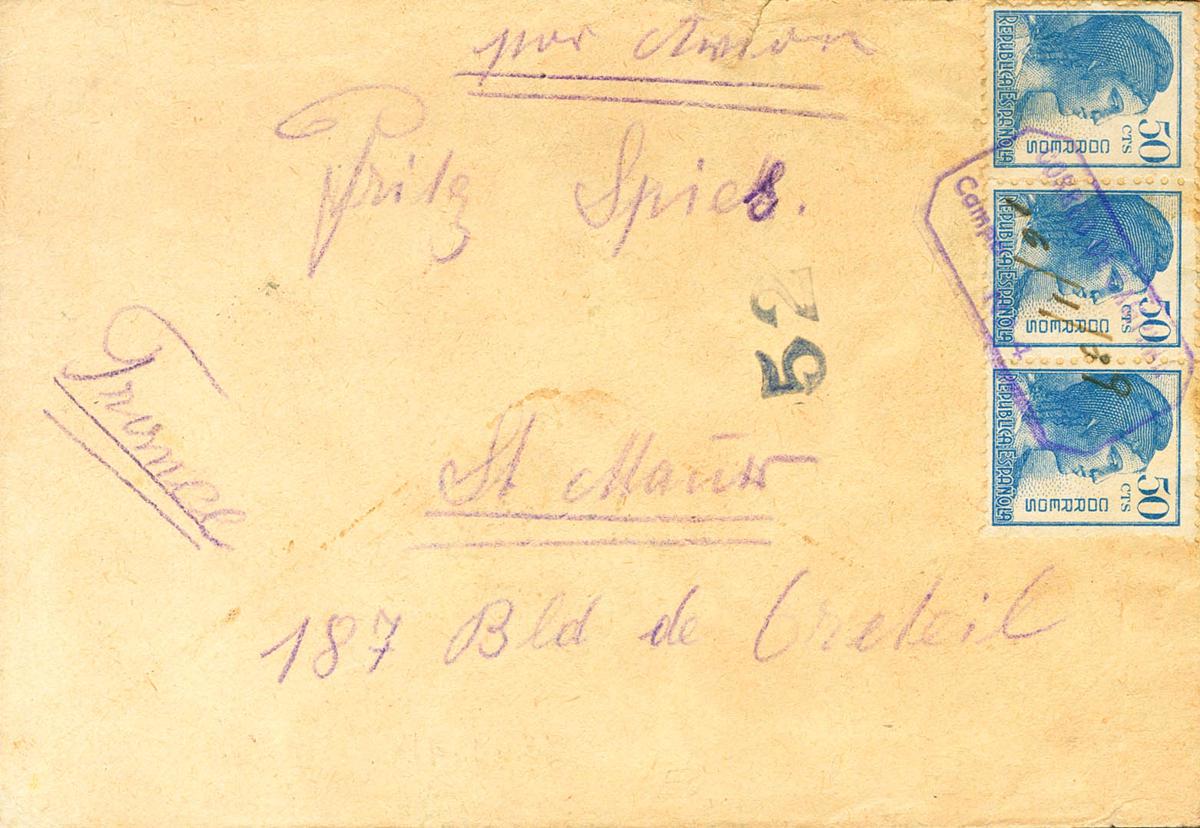 por Avion
Fritz Spies.
52
France
St Maur
187 Bld de Creteil
REPUBLICA ESPAÑOLA
CORREOS
50 CTS
REPUBLICA ESPAÑOLA
CORREOS
50 CTS
REPUBLICA ESPAÑOLA
CORREOS
50 CTS